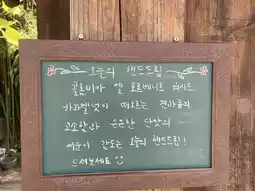 오늘의 핸드드립
콜롬비아 엘 포르베니르 워시드
카라멜넛이 떠오르는 견과류의
고소함과 은은한 단맛의
여운이 감도는 오늘의 핸드드립!
드셔보세요